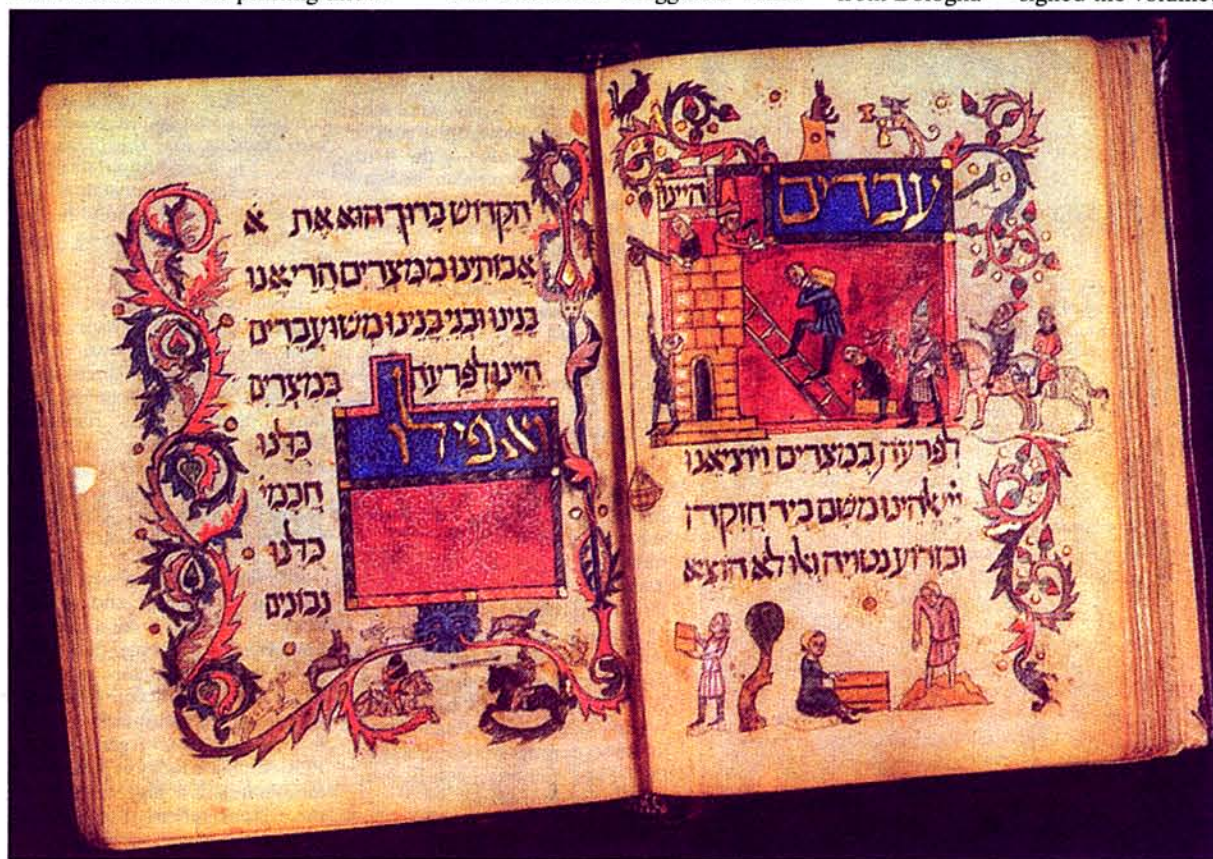 from Bologna signed the volumes
עבדים היינו
לפרעה במצרים ויוציאנו
אלהינו משם ביד חזקה
ובזרוע נטויה ואלו לא הוציא
הקדוש ברוך הוא את א
אבותינו ממצרים הרי אנו
בנינו ובני בנינו משועבדים
היינו לפרעה במצרים
ואפילו
כלנו
חכמי
כלנו
נבונים